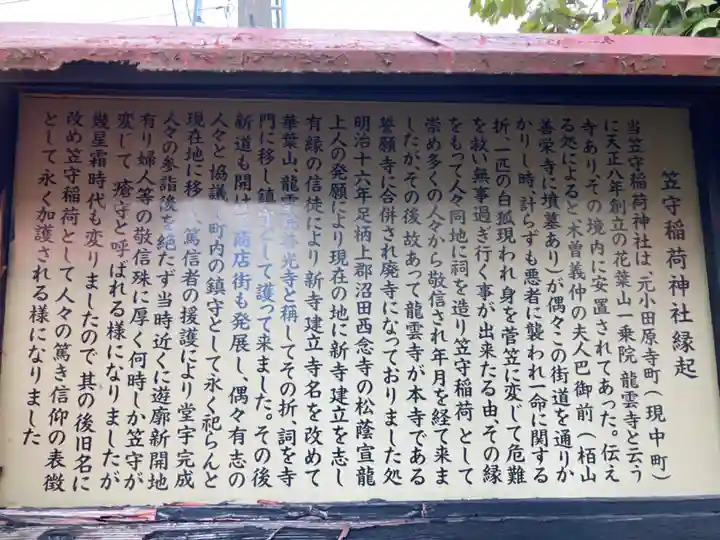 笠守稲荷神社縁起
当笠守稲荷神社は、元小田原寺町(現中町)
に天正八年創立の花葉山一乗院 龍雲寺と云う
寺あり、その境内に安置されてあった。伝え
る処によると、木曽義仲の夫人巴御前(栢山
善栄寺に墳墓あり)が偶々この街道を通りか
かりし時、計らずも悪者に襲われ一命に関する
折、一匹の白狐現われ身を菅笠に変じて危難
を救い無事過ぎ行く事が出来たる由、その縁
をもって人々同地に祠を造り笠守稲荷 として
崇め多くの人々から敬信され年月を経て来ま
したが、その後故あって龍雲寺が本寺である
誓願寺に合併され廃寺になっておりました処
明治十六年足柄上郡沼田西念寺の松蔭宣龍
上人の発願により現在の地に新寺建立を志し
有縁の信徒により新寺建立寺名を改めて
華葉山、龍雲院善光寺と称してその折、詞を寺
門に移し鎮守として護って来ました。その後
新道も開け、商店街も発展し、偶々有志の
人々と協議し町内の鎮守として永く祀らんと
現在地に移し、篤信者の援護により堂宇完成
人々の参詣後を絶たず当時近くに遊廓新開地
有り婦人等の敬信殊に厚く何時しか笠守が
変じて、瘡守と呼ばれる様になりましたが
幾星霜時代も変りましたので、其の後旧名に
改め笠守稲荷として人々の篤き信仰の表徴
として永く加護される様になりました